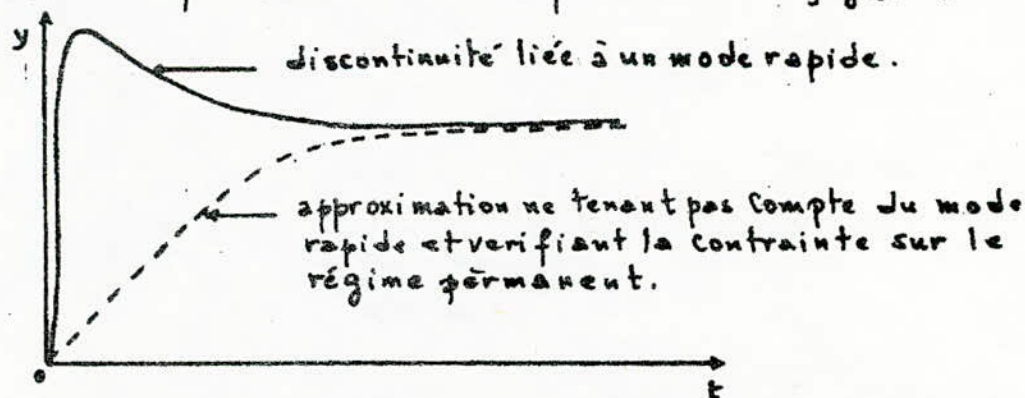 y
discontinuité liée à un mode rapide.
approximation ne tenant pas compte du mode
rapide et verifiant la contrainte sur le
régime pèrmanent.
o
t